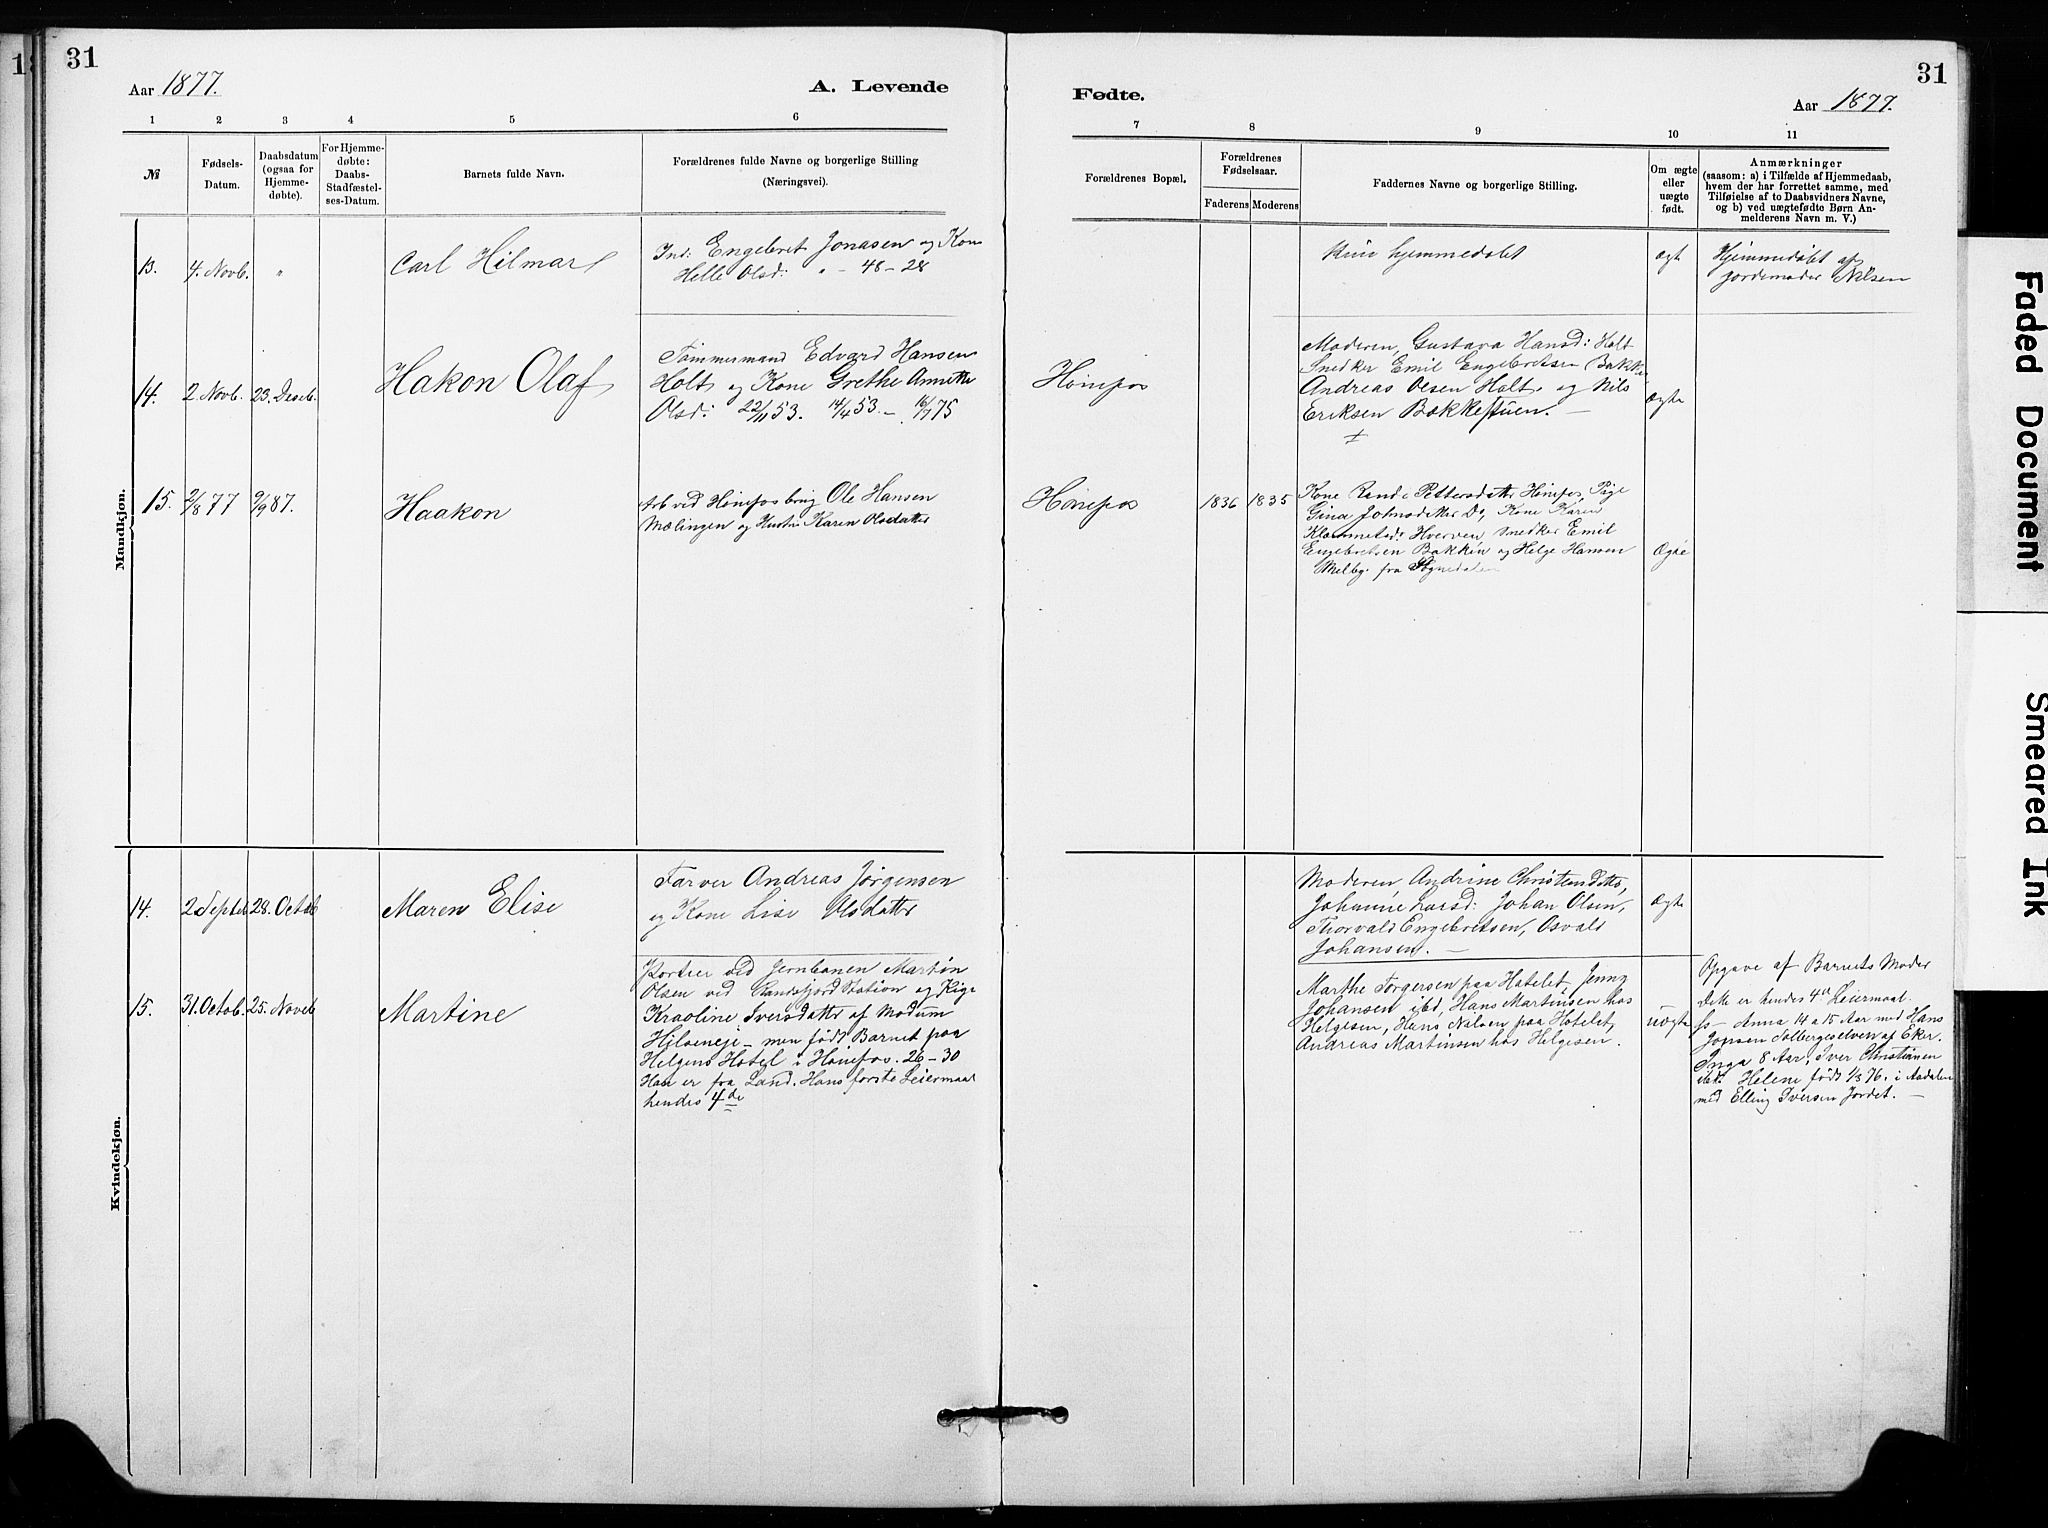 31
Aar 1877.
A. Levende
1 2 3 4 5 6
№
Fødsels-
Datum.
Daabsdatum
(ogsaa for
Hjemme-
døbte).
For Hjemme-
døbte:
Daabs-
Stadfæstel-
ses-Datum.
Barnets fulde Navn.
Forældrenes fulde Navne og borgerlige Stilling
(Næringsvei).
Mandkjøn.
13. 4. Novb. " Carl Hilmar
Ind: Engebret Jonasen og Kone
Helle Olsd: " - 48-28
14. 2 Novb. 23. Deseb. Hakon Olaf
Tømmermand Edvard Hansen
Holt og Kone Grethe Annette
Olsd: 22/11 53. 14/4 53.- 16/7 75
15. 2/8 77 9/9 87. Haakon
Arb ved Hønefos brug Ole Hansen
Mælingen og Hustru Karen Olsdatter
Kvindekjøn.
14. 2 Septeb 28. Octob Maren Elise
Farver Andreas Jørgensen
og Kone Lise Olsdatter
15. 31. Octob. 25. Noveb Martine
Portier ved Jernbanen Martin
Olsen ved Randsfjord Station og Pige
Kraoline Iversdatter af Modum
Hjloeneje - men født Barnet paa
Helgens Hotel i Hønefos. 26-30
Han er fra Land. Hans første Leiermaal
hendes 4de
31
Fødte.
Aar 1877.
7 8 9 10 11
Forældrenes Bopæl.
Forældrenes
Fødselsaar.
Faderens Moderens
Faddernes Navne og borgerlige Stilling.
Om ægte
eller
uægte
født.
Anmærkninger
(saasom: a) i Tilfælde af Hjemmedaab,
hvem der har forrettet samme, med
Tilføielse af to Daabsvidners Navne,
og b) ved uægtefødte Børn An-
melderens Navn m. V.)
Kun hjemmedøbt
Ægt
Hjemmedøbt af
Jordemoder Nilsen
Hønefos
Moderen, Gustava Hansd: Holt
Snedker Emil Engebretsen Bakke
Andreas Olsen Holt og Nils
Eriksen Bakkestuen. -
Ægte
Hønefos 1836 1835
Kone Randi Pettersdatter Hønefos, Pige
Gina Johnsdatter Do, Kone Karen
Klemmetsd: Hverven, Snedker Emil
Engebretsen Bakken og Helge Hansen
Melby fra Sognedalen
Ægte
Moderen, Andrine Christensdatter,
Johanne Larsd: Johan Olsen,
Thorvald Engebretsen, Osvald
Johansen. -
Ægte
Marthe Torgersen paa Hotelet, Jenny
Johansen ibd, Hans Martinsen hos
Helgesen, Hans Nilsen paa Hotelet,
Andreas Martinsen hos Helgesen.
uægte
Opgave af Barnets Moder
Dette er hendes 4de Leiermaal.
- Anna 14 a 15 Aar med Hans
Jopsen Solbergselven af Eker.
Inga 8 Aar, Iver Christiansen
ibd: Helene født 1/3 76. i Aadalen
med Elling Iversen Jordet. -
Faded Document
Smeared Ink